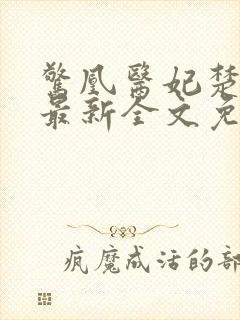 驚凰醫妃楚
最新全文免
疯魔成活的部